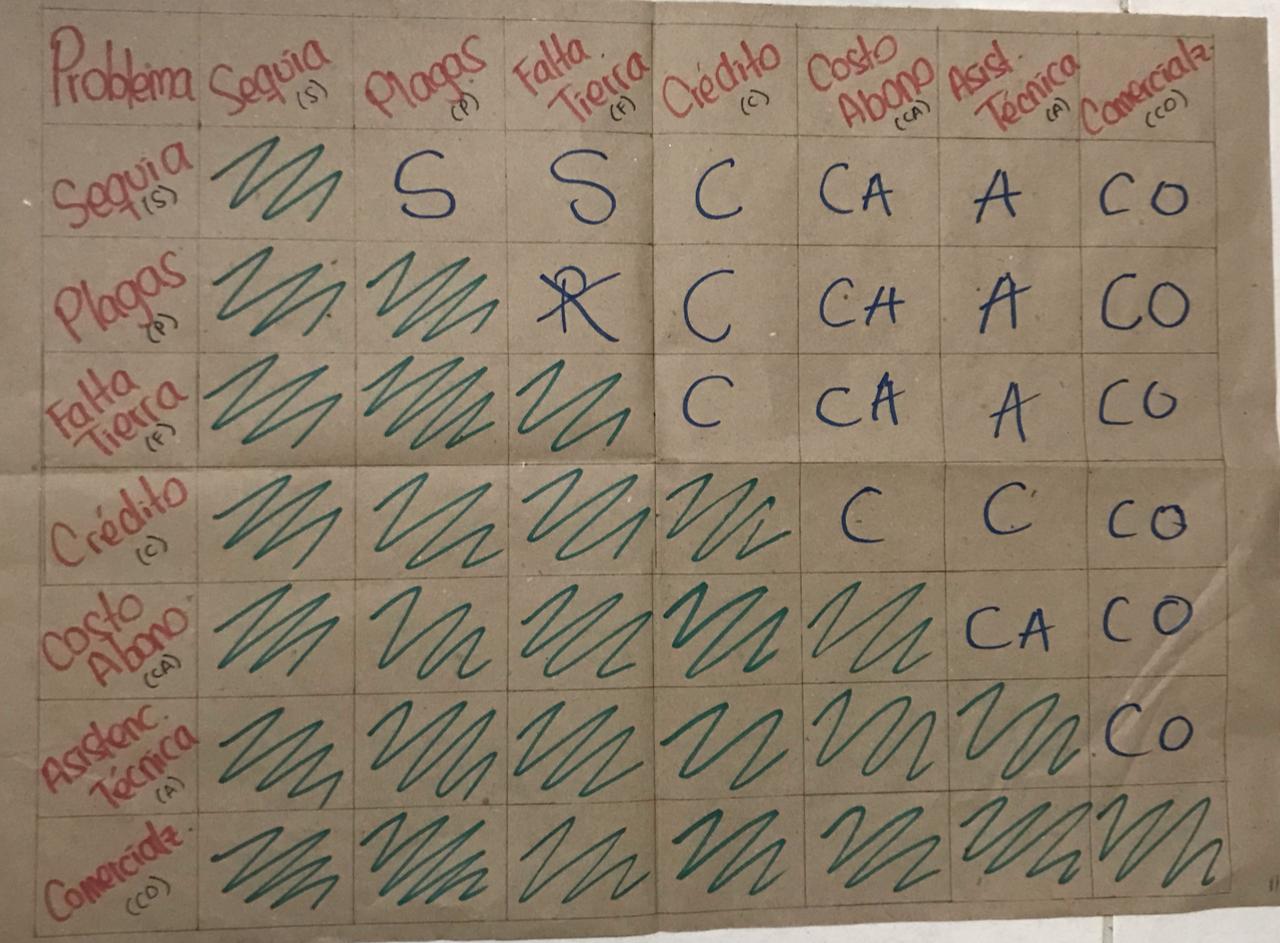 Problema Sequia (S) Plagas (P) Falta Tierra (F) Crédito (C) Costo Abono (CA) Asist. Técnica (A) Comercialz. (CO)
Sequia (S) S S C CA A CO
Plagas (P) C CA A CO
Falta Tierra (F) C CA A CO
Crédito (C) C C CO
Costo Abono (CA) CA CO
Asistenc. Técnica (A) CO
Comercialz. (CO)